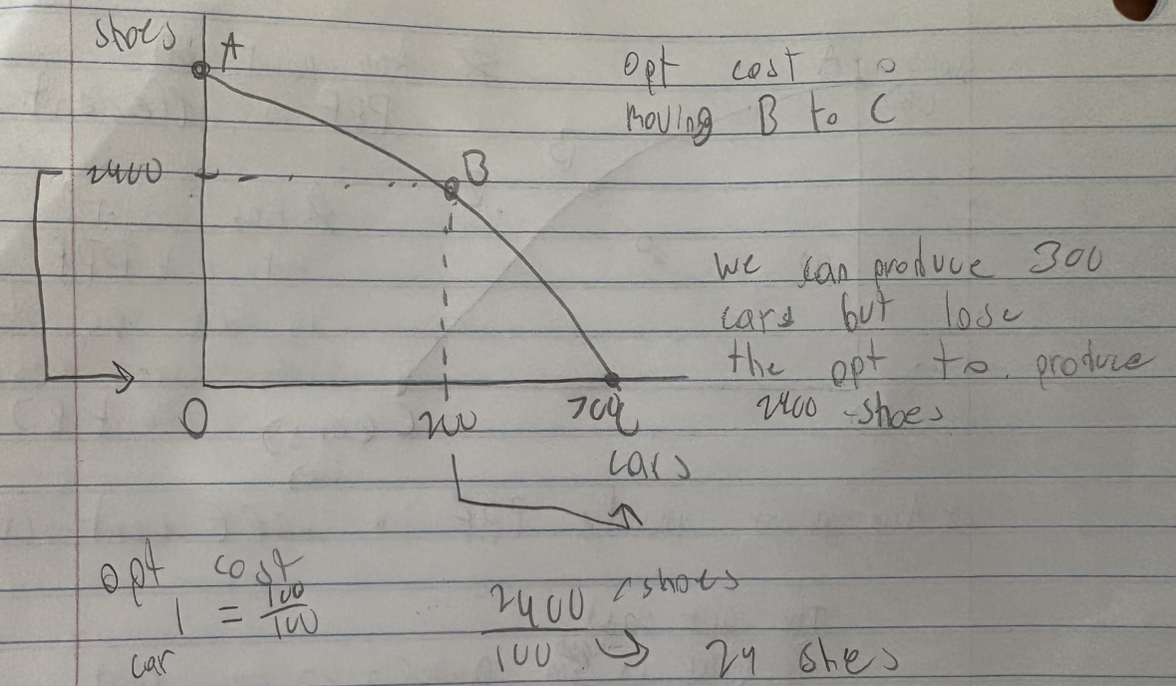 shoes
A
opt cost :
moving B to C
2400
B
we can produce 300
cars but lose
the opt to produce
2400 shoes
0
200
C
cars
opt cost
1 = 100/100
car
2400 shoes
100 → 24 shes